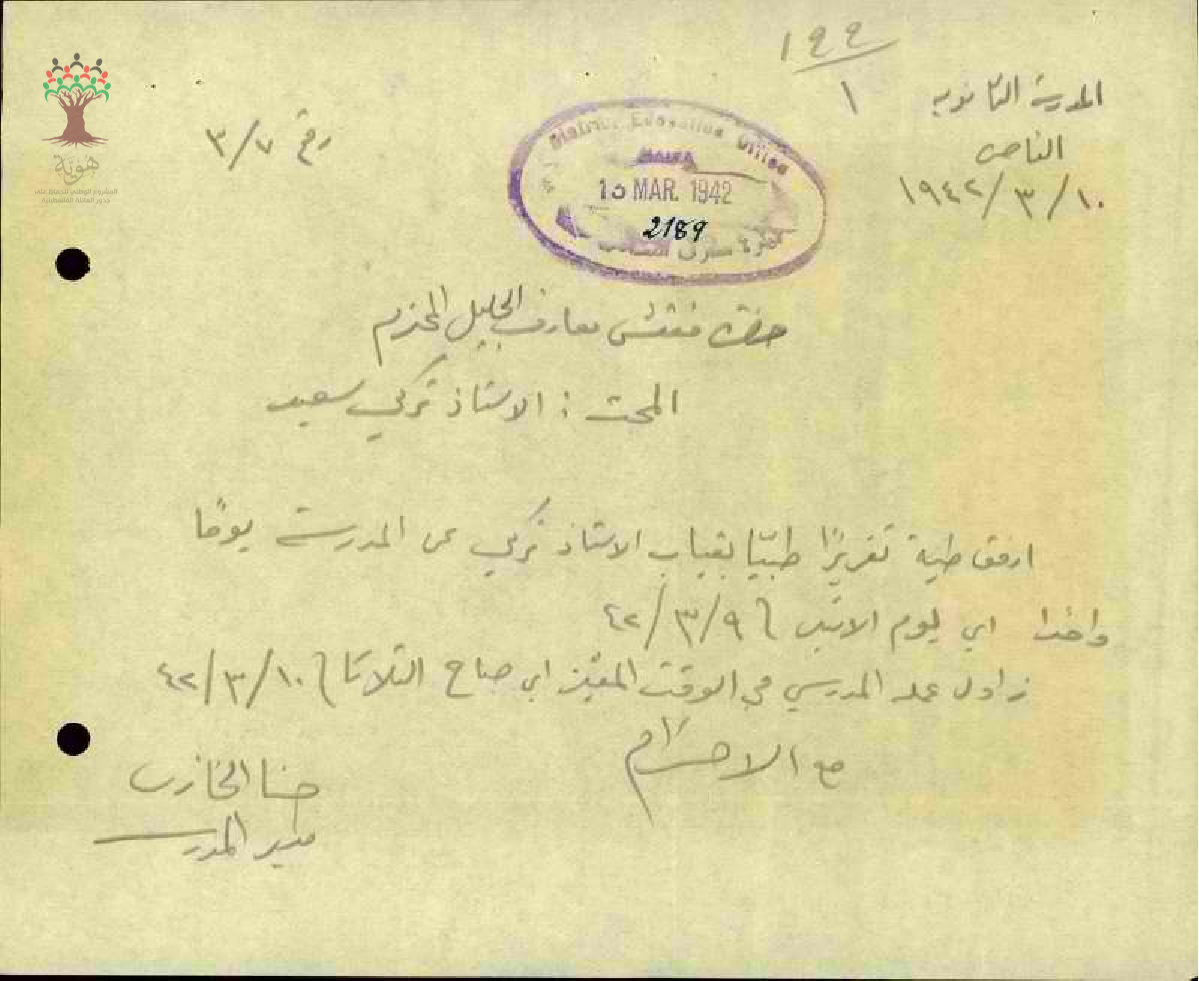 ١٩٩
١
المدرسة الثانوية
الناصرة
١٩٤٢/٣/١٠
رقم ٣/٧
District Education Office
HAIFA
10 MAR. 1942
2189
هوية
المشروع الوطني للحفاظ على
جذور العائلة الفلسطينية
حضرة مفتش معارف الجليل المحترم
المبحث : الاستاذ تركي سعيد
ارفق طيه تقريرًا طبيًا بغياب الاستاذ تركي عن المدرسة يومًا
واحدا اي يوم الاثنين ٤٢/٣/٩
زاول عمله المدرسي في الوقت المعين اي صباح الثلاثا ٤٢/٣/١٠
مع الاحترام
حنا الخازن
مدير المدرسة